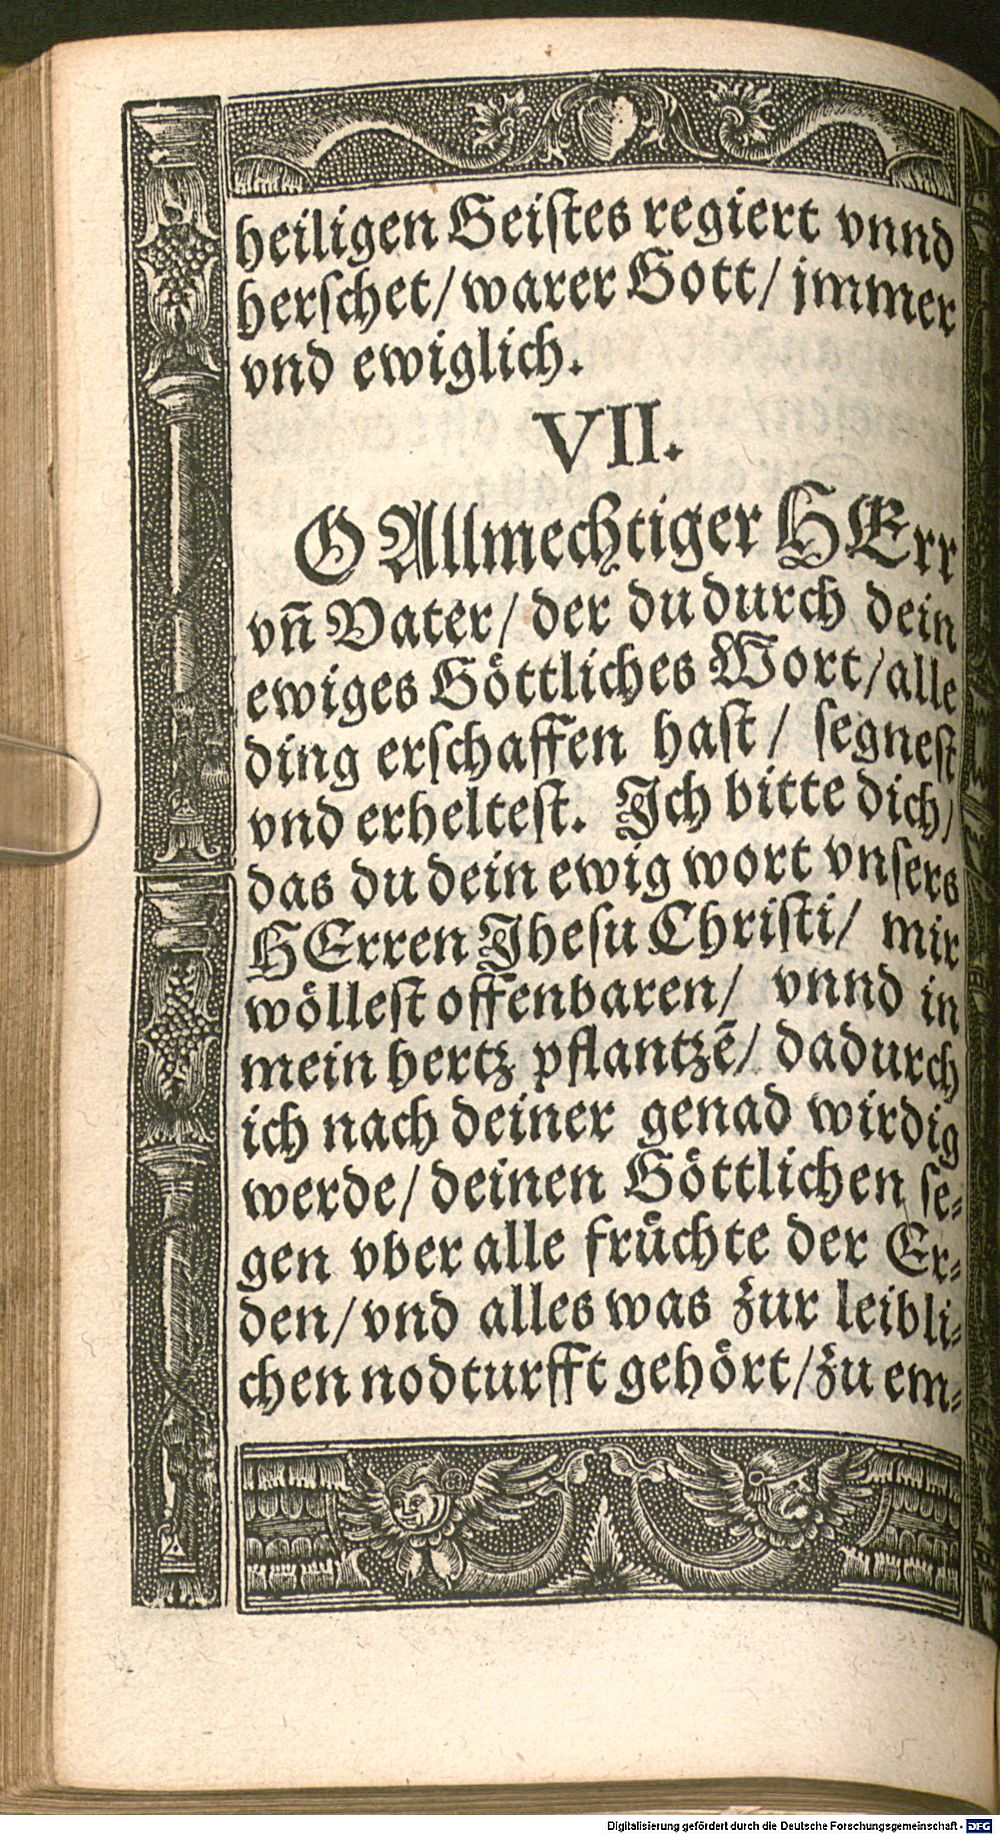 heiligen Geiſtes regiert vnnd
herſchet/ warer Gott/ jmmer
vnd ewiglich.
VII.
O Allmechtiger HErr
vñ Vater/ der du durch dein
ewiges Göttliches Wort/ alle
ding erſchaffen haſt/ ſegneſt
vnd erhelteſt. Ich bitte dich/
das du dein ewig wort vnſers
HErren Jheſu Chriſti/ mir
wölleſt offenbaren/ vnnd in
mein hertz pflantzē/ dadurch
ich nach deiner genad wirdig
werde/ deinen Göttlichen ſe⸗
gen vber alle früchte der Er⸗
den/ vnd alles was zur leibli⸗
chen nodturfft gehört/ zu em⸗
Digitalisierung gefördert durch die Deutsche Forschungsgemeinschaft - DFG